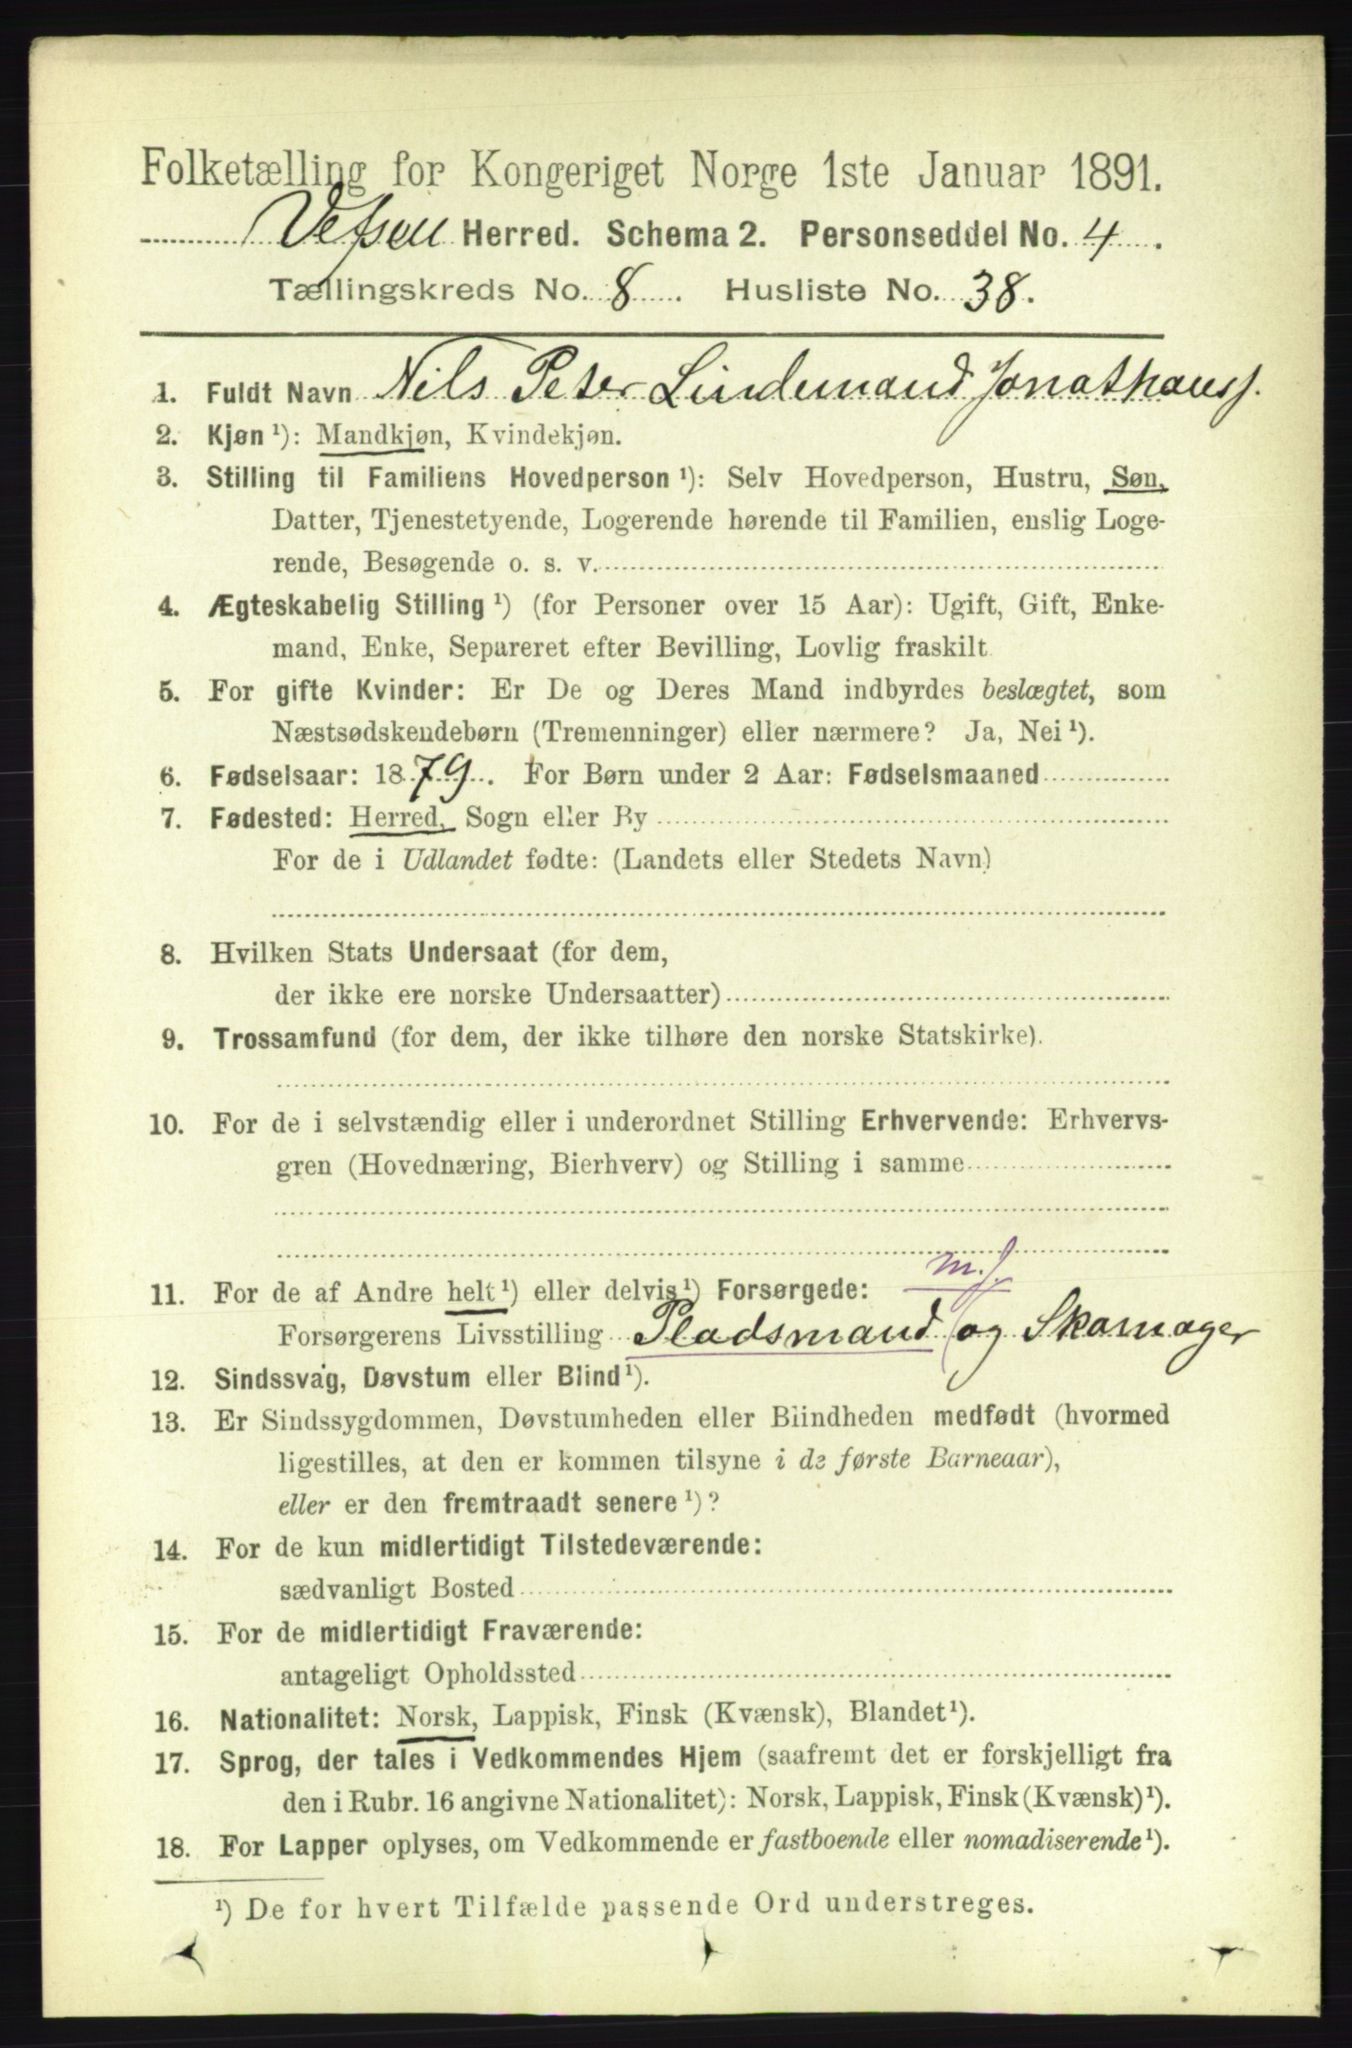 Folketælling for Kongeriget Norge 1ste Januar 1891.
Vefsen Herred. Schema 2. Personseddel No. 4.
Tællingskreds No. 8. Husliste No. 38.
1. Fuldt Navn Nils Peter Lindemand Jonathans.
2. Kjøn ¹): Mandkjøn, Kvindekjøn.
3. Stilling til Familiens Hovedperson ¹): Selv Hovedperson, Hustru, Søn,
Datter, Tjenestetyende, Logerende hørende til Familien, enslig Loge-
rende, Besøgende o. s. v.
4. Ægteskabelig Stilling ¹) (for Personer over 15 Aar): Ugift, Gift, Enke-
mand, Enke, Separeret efter Bevilling, Lovlig fraskilt
5. For gifte Kvinder: Er De og Deres Mand indbyrdes beslægtet, som
Næstsødskendebørn (Tremenninger) eller nærmere? Ja, Nei ¹).
6. Fødselsaar: 1879. For Børn under 2 Aar: Fødselsmaaned
7. Fødested: Herred, Sogn eller By
For de i Udlandet fødte: (Landets eller Stedets Navn)
8. Hvilken Stats Undersaat (for dem,
der ikke ere norske Undersaatter)
9. Trossamfund (for dem, der ikke tilhøre den norske Statskirke).
10. For de i selvstændig eller i underordnet Stilling Erhvervende: Erhvervs-
gren (Hovednæring, Bierhverv) og Stilling i samme
m.f.
11. For de af Andre helt ¹) eller delvis ¹) Forsørgede:
Forsørgerens Livsstilling Pladsmand og Skomager
12. Sindssvag, Døvstum eller Blind ¹).
13. Er Sindssygdommen, Døvstumheden eller Blindheden medfødt (hvormed
ligestilles, at den er kommen tilsyne i de første Barneaar),
eller er den fremtraadt senere ¹)?
14. For de kun midlertidigt Tilstedeværende:
sædvanligt Bosted
15. For de midlertidigt Fraværende:
antageligt Opholdssted
16. Nationalitet: Norsk, Lappisk, Finsk (Kvænsk), Blandet ¹).
17. Sprog, der tales i Vedkommendes Hjem (saafremt det er forskjelligt fra
den i Rubr. 16 angivne Nationalitet): Norsk, Lappisk, Finsk (Kvænsk) ¹).
18. For Lapper oplyses, om Vedkommende er fastboende eller nomadiserende ¹).
¹) De for hvert Tilfælde passende Ord understreges.